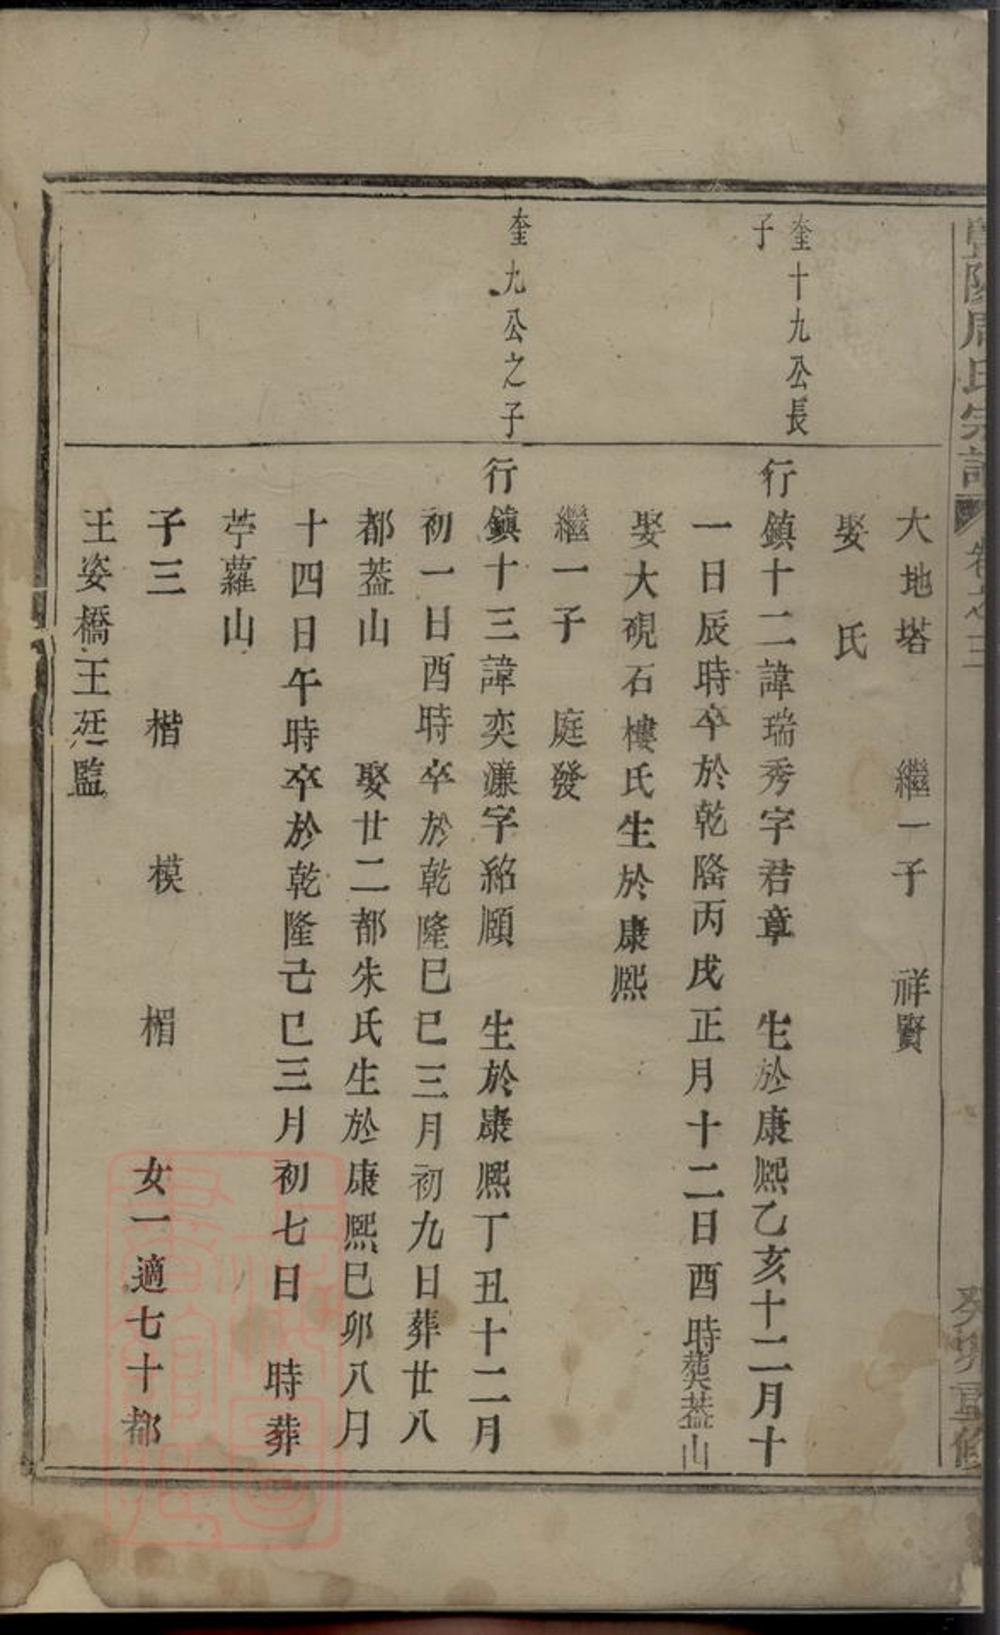 陽周氏宗譜 卷之三 癸卯重修
大地塔 繼一子 祥賢
娶 氏
奎十九公長
子
行鎮十二諱瑞秀字君章 生於康熙乙亥十二月十
一日辰時卒於乾隆丙戌正月十二日酉時葬葢山
娶大硯石樓氏生於康熙
繼一子 庭發
奎九公之子
行鎮十三諱奕濂字紹頤 生於康熙丁丑十二月
初一日酉時卒於乾隆巳巳三月初九日葬廿八
都葢山 娶廿二都朱氏生於康熙巳卯八月
十四日午時卒於乾隆己巳三月初七日 時葬
苧蘿山
子三 楷 模 楣 女一適七十都
王姿橋王廷監
上海圖書館藏